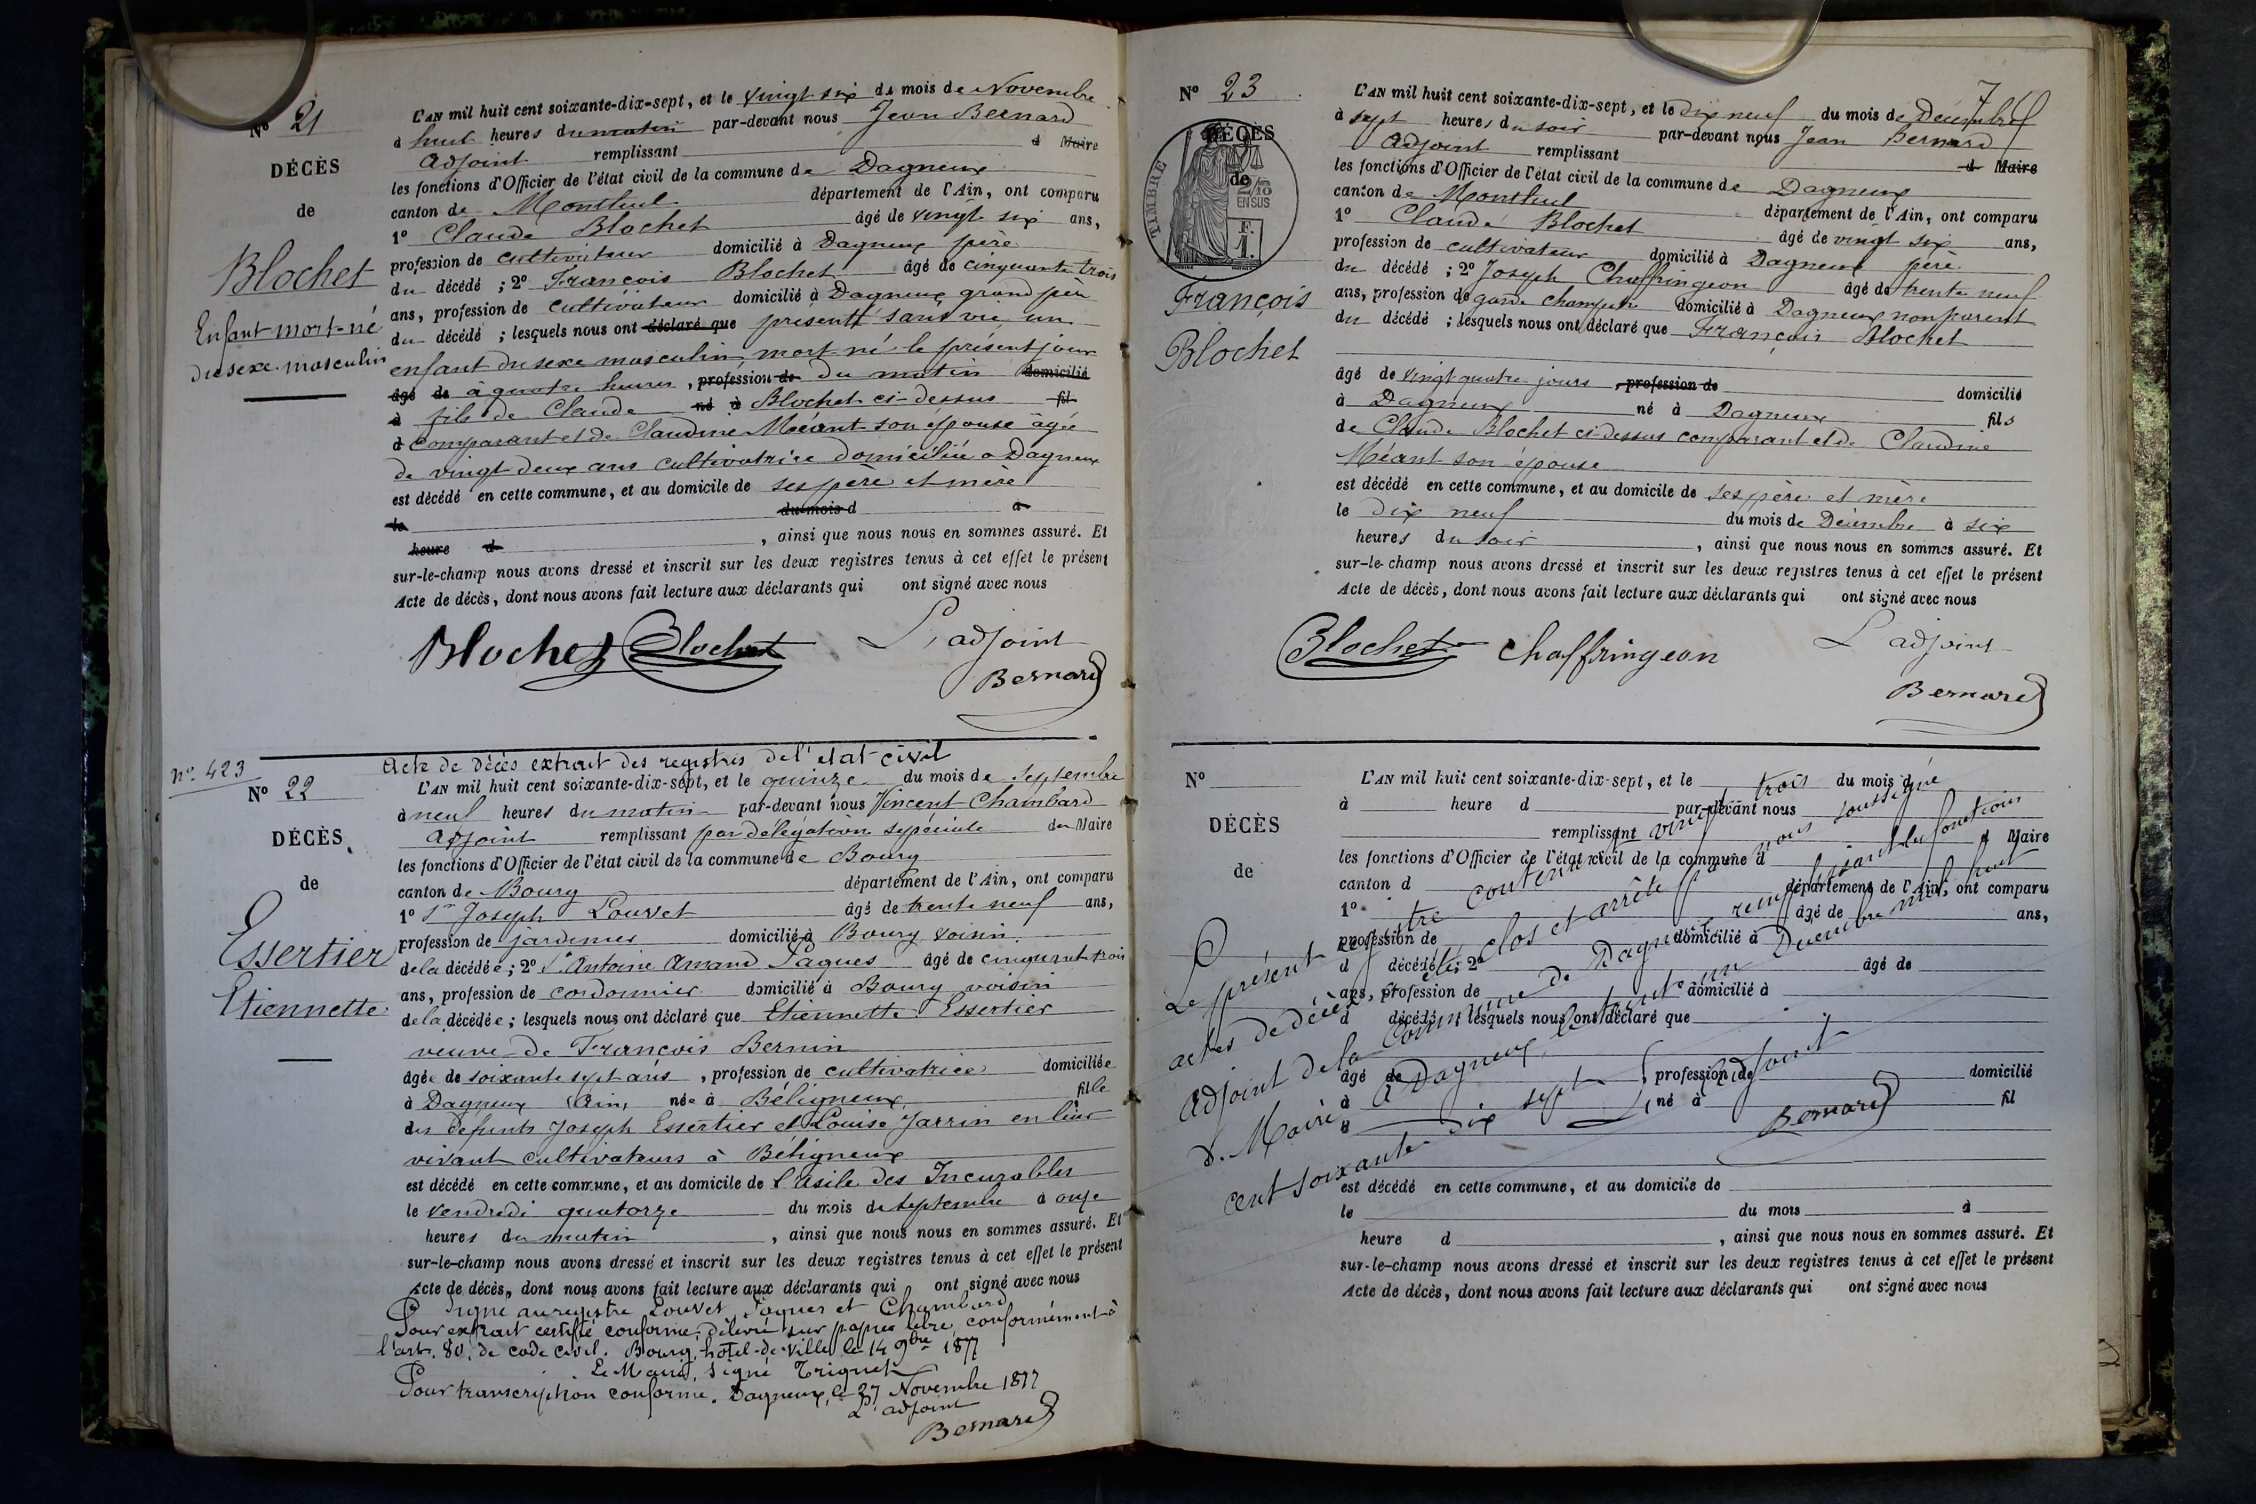 Nº 21
DÉCÈS
de
Blochet
Enfant mort-né
du sexe masculin
L'AN mil huit cent soixante-dix-sept, et le vingt six du mois de Novembre
à huit heures du matin par-devant nous Jean Bernard
adjoint remplissant d Maire
les fonctions d'Officier de l'état civil de la commune de Dagneux
canton de Montluel département de l'Ain, ont comparu
1º Claude Blochet âgé de vingt six ans,
profession de cultivateur domicilié à Dagneux père
du décédé ; 2º François Blochet âgé de cinquante trois
ans, profession de cultivateur domicilié à Dagneux grand père
du décédé ; lesquels nous ont déclaré que présenté sans vie un
enfant du sexe masculin mort né le présent jour
âgé de à quatre heures, profession de du matin domicilié
à fils de Claude né à Blochet ci-dessus fil
d comparant et de Claudine Méant son épouse âgée
de vingt deux ans cultivatrice domiciliée à Dagneux
est décédé en cette commune, et au domicile de ses père et mère
le du mois d à
heure d , ainsi que nous nous en sommes assuré. Et
sur-le-champ nous avons dressé et inscrit sur les deux registres tenus à cet effet le présent
Acte de décès, dont nous avons fait lecture aux déclarants qui ont signé avec nous
Blochet Blochet L'adjoint
Bernard
nº 423
Nº 22
DÉCÈS
de
Essertier
Etiennette
Acte de décès extrait des registres de l'état civil
L'AN mil huit cent soixante-dix-sept, et le quinze du mois de Septembre
à neuf heures du matin par-devant nous Vincent Chambard
adjoint remplissant par délégation spéciale du Maire
les fonctions d'Officier de l'état civil de la commune de Bourg
canton de Bourg département de l'Ain, ont comparu
1º Sr Joseph Louvet âgé de trente neuf ans,
profession de jardinier domicilié à Bourg voisin
de la décédée ; 2º Sr Antoine Amand Paques âgé de cinquante trois
ans, profession de cordonnier domicilié à Bourg voisin
de la décédée ; lesquels nous ont déclaré que Etiennette Essertier
veuve de François Bernin
âgée de soixante sept ans, profession de cultivatrice domiciliée
à Dagneux (Ain) née à Béligneux fille
des défunts Joseph Essertier et Louise Jarrin en leur
vivant cultivateurs à Béligneux
est décédé en cette commune, et au domicile de l'asile des Incurables
le vendredi quatorze du mois de septembre à onze
heures du matin , ainsi que nous nous en sommes assuré. Et
sur-le-champ nous avons dressé et inscrit sur les deux registres tenus à cet effet le présent
Acte de décès, dont nous avons fait lecture aux déclarants qui ont signé avec nous
Signé au registre Louvet, Paques et Chambard
Pour extrait certifié conforme, délivré sur papier libre conformément à
l'art. 80, de code civil. Bourg, hôtel-de-ville, le 14 9bre 1877
Le Maire, signé
Pour transcription conforme. Dagneux, le 27 Novembre 1877
L'adjoint
Bernard
Nº 23
DÉCÈS
de
TIMBRE
2/10
EN SUS
F.
1.
François
Blochet
7
L'AN mil huit cent soixante-dix-sept, et le dix neuf du mois de Décembre
à sept heures du soir par-devant nous Jean Bernard
Adjoint remplissant d Maire
les fonctions d'Officier de l'état civil de la commune de Dagneux
canton de Montluel département de l'Ain, ont comparu
1º Claude Blochet âgé de vingt six ans,
profession de cultivateur domicilié à Dagneux père
du décédé ; 2º Joseph Chaffringeon âgé de trente neuf
ans, profession de garde champêtre domicilié à Dagneux non parent
du décédé ; lesquels nous ont déclaré que François Blochet
âgé de vingt quatre jours, profession de domicilié
à Dagneux né à Dagneux fils
de Claude Blochet ci-dessus comparant et de Claudine
Méant son épouse
est décédé en cette commune, et au domicile de ses père et mère
le dix neuf du mois de Décembre à six
heures du soir , ainsi que nous nous en sommes assuré. Et
sur-le-champ nous avons dressé et inscrit sur les deux registres tenus à cet effet le présent
Acte de décès, dont nous avons fait lecture aux déclarants qui ont signé avec nous
Blochet Chaffringeon L'adjoint
Bernard
Nº
DÉCÈS
de
L'AN mil huit cent soixante-dix-sept, et le du mois d
à heure d par-devant nous
remplissant d Maire
les fonctions d'Officier de l'état civil de la commune d
canton d département de l'Ain, ont comparu
1º âgé de ans,
profession de domicilié à
d décédé ; 2º âgé de
ans, profession de domicilié à
d décédé ; lesquels nous ont déclaré que
âgé de , profession de domicilié
à , né à fil
d
est décédé en cette commune, et au domicile de
le du mois à
heure d , ainsi que nous nous en sommes assuré. Et
sur-le-champ nous avons dressé et inscrit sur les deux registres tenus à cet effet le présent
Acte de décès, dont nous avons fait lecture aux déclarants qui ont signé avec nous
Le présent registre contenant vingt trois
actes de décès a été clos et arrêté par nous soussigné
adjoint de la commune de Dagneux remplissant les fonctions
d. Maire à Dagneux, le trente un Décembre mil huit
cent soixante dix sept L'adjoint
Bernard